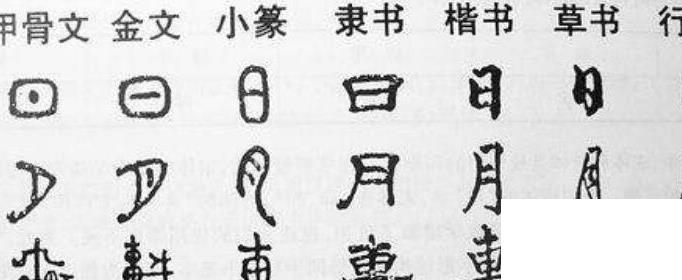 甲骨文 金文 小篆 隶书 楷书 草书 行
日 日 日 日 日 日
月 月 月 月 月 月
車 車 車 車 車